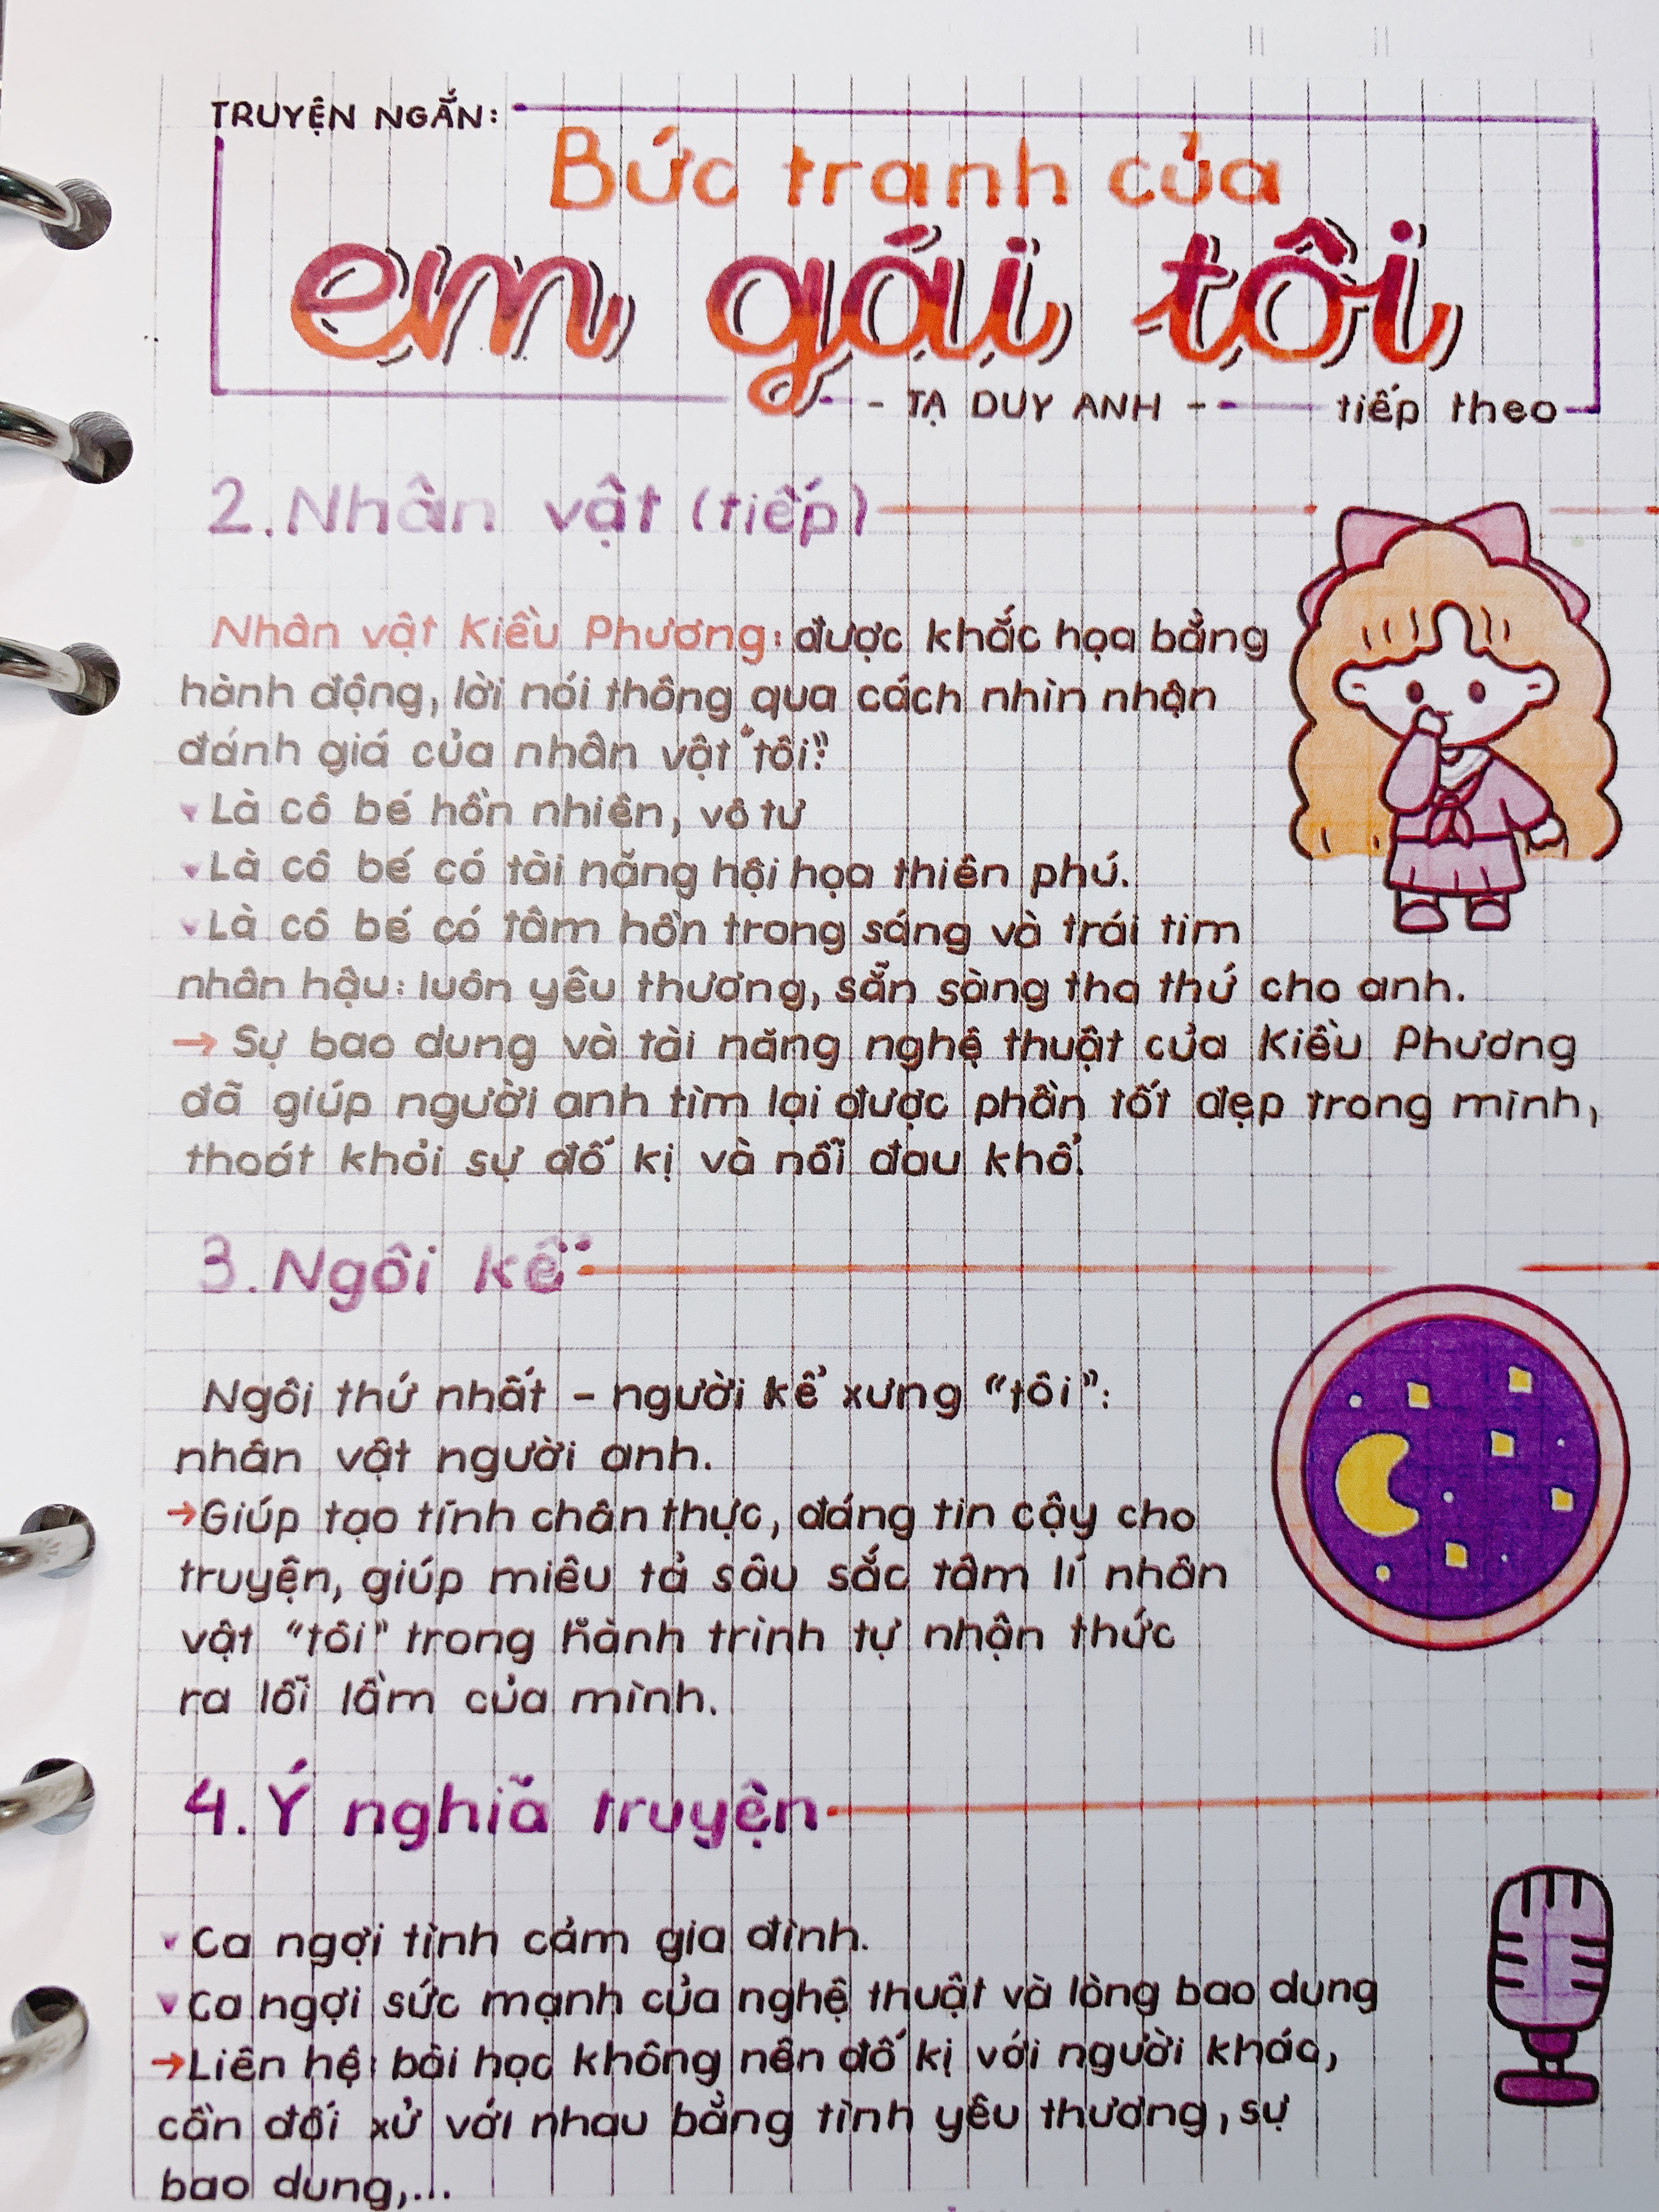 TRUYỆN NGẮN:
Bức tranh của
em gái tôi
- TẠ DUY ANH -
tiếp theo
2. Nhân vật (tiếp)
Nhân vật Kiều Phương: được khắc họa bằng
hành động, lời nói thông qua cách nhìn nhận
đánh giá của nhân vật "tôi".
Là cô bé hồn nhiên, vô tư
Là cô bé có tài năng hội họa thiên phú.
Là cô bé có tâm hồn trong sáng và trái tim
nhân hậu: luôn yêu thương, sẵn sàng tha thứ cho anh.
→ Sự bao dung và tài năng nghệ thuật của Kiều Phương
đã giúp người anh tìm lại được phần tốt đẹp trong mình,
thoát khỏi sự đố kị và nỗi đau khổ.
3. Ngôi kể
Ngôi thứ nhất - người kể xưng "tôi":
nhân vật người anh.
→ Giúp tạo tính chân thực, đáng tin cậy cho
truyện, giúp miêu tả sâu sắc tâm lí nhân
vật "tôi" trong hành trình tự nhận thức
ra lỗi lầm của mình.
4. Ý nghĩa truyện
Ca ngợi tình cảm gia đình.
Ca ngợi sức mạnh của nghệ thuật và lòng bao dung
→ Liên hệ: bài học không nên đố kị với người khác,
cần đối xử với nhau bằng tình yêu thương, sự
bao dung,...